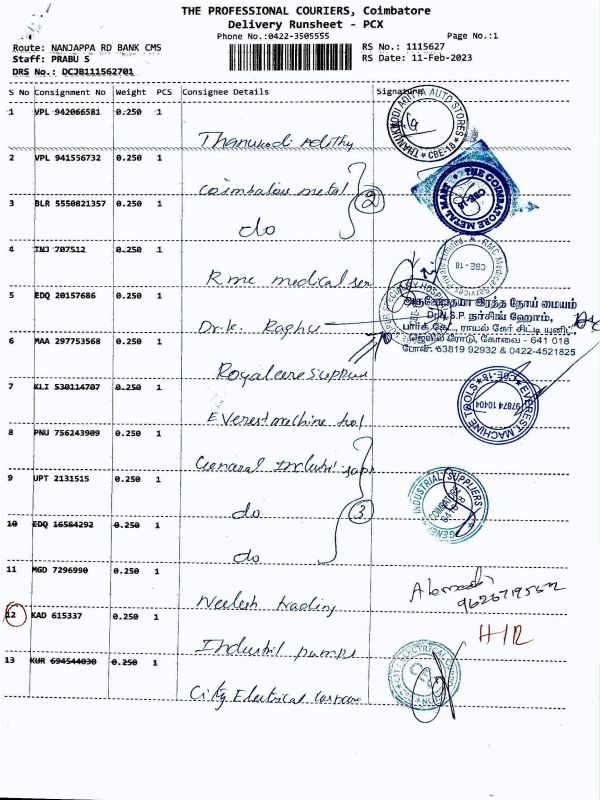 THE PROFESSIONAL COURIERS, Coimbatore
Delivery Runsheet - PCX
Phone No.:0422-3505555
Page No.:1
Route: NANJAPPA RD BANK CMS
Staff: PRABU S
DRS No.: DCJB111562701
RS No.: 1115627
RS Date: 11-Feb-2023
S No Consignment No Weight PCS Consignee Details Signature
1 VPL 942066581 0.250 1
Thanukodi Adithy
THANUKKODI ADITYA AUTO STORES
* CBE-18 *
2 VPL 941556732 0.250 1
Coimbatore metal
THE COIMBATORE METAL MART
CBE-18
3 BLR 5550821357 0.250 1
do
2
4 TNJ 707512 0.250 1
Rmc medical ser
RMC Medical Services Private Limited
CBE - 18
5 EDQ 20157686 0.250 1
Dr.K. Raghu
இரத்த நோய் மையம்
Dr.N.S.P. நர்சிங் ஹோம்,
பார்க் கேட், ராயல் கேர் சிட்டி யூனிட்,
ஜெயில் ரோடு, கோவை - 641 018
போன்: 63819 92932 & 0422-4521825
6 MAA 297753568 0.250 1
Royalcare Suppur
7 KLI 530114707 0.250 1
Everest machine tool
EVEREST MACHINE TOOLS
CBE-18
97874 10404
8 PNU 756243909 0.250 1
General Industil supp
9 UPT 2131515 0.250 1
do
3
GENERAL INDUSTRIAL SUPPLIERS
COIMBATORE
641018
10 EDQ 16584292 0.250 1
do
11 MGD 7296990 0.250 1
Neelesh trading
12 KAD 615337 0.250 1
Industril pumps
13 KUR 694544030 0.250 1
City Electrical corpora
CITY ELECTRICAL